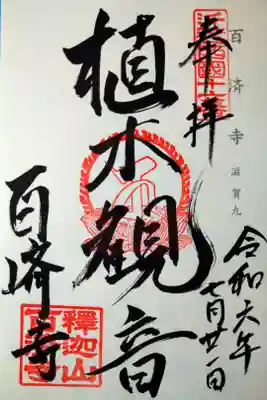 百済寺 滋賀九
奉拝
令和六年
七月廿一日
植木観音
百済寺
釋迦山
百済寺